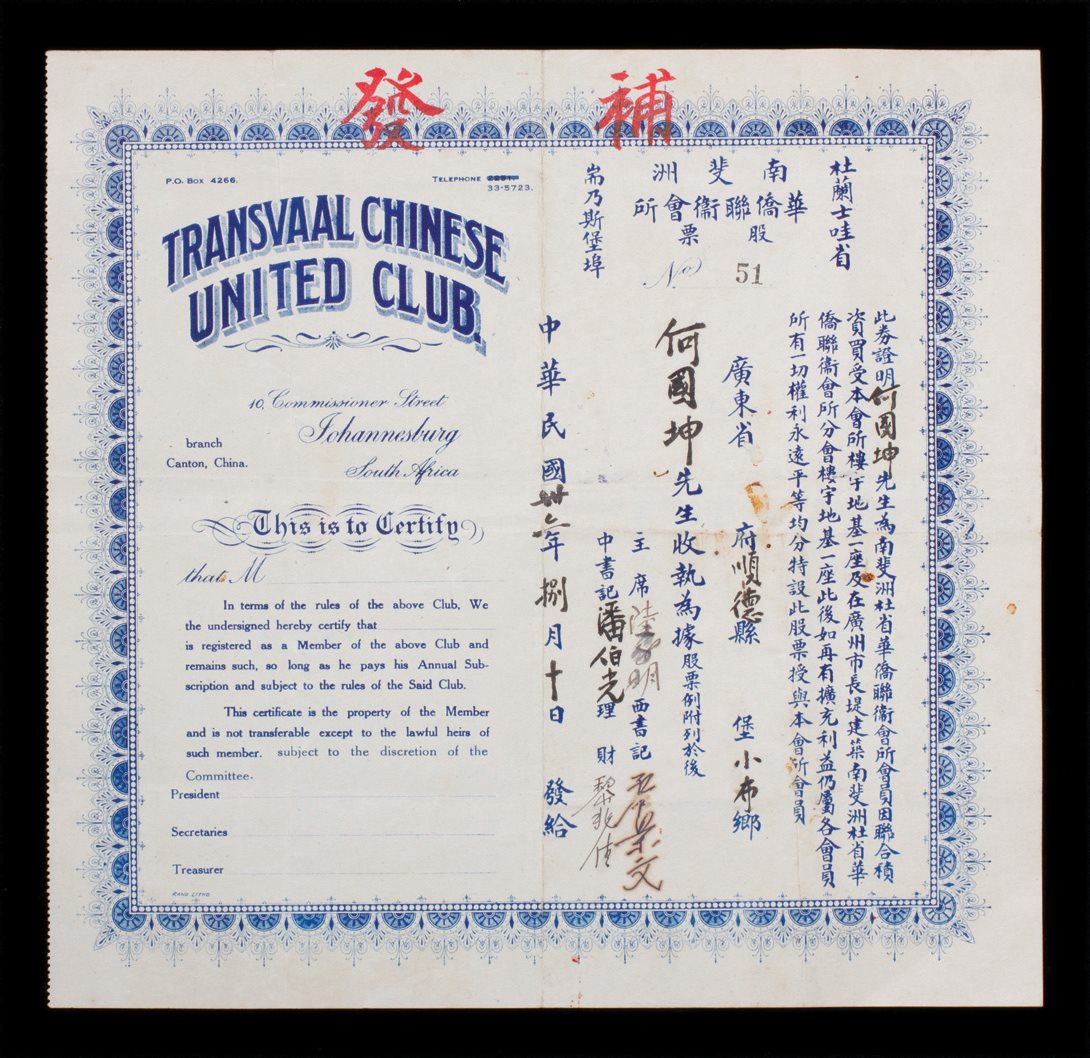 補發
P.O. Box 4266.
TELEPHONE
33-5723.
TRANSVAAL CHINESE
UNITED CLUB.
10, Commissioner Street
Johannesburg
South Africa
branch
Canton, China.
This is to Certify
that M
In terms of the rules of the above Club, We
the undersigned hereby certify that
is registered as a Member of the above Club and
remains such, so long as he pays his Annual Sub-
scription and subject to the rules of the Said Club.
This certificate is the property of the Member
and is not transferable except to the lawful heirs of
such member. subject to the discretion of the
Committee.
President
Secretaries
Treasurer
RAND LITHO
杜蘭士哇省
南斐洲
華僑聯衞會所
股票
No 51
耑乃斯堡埠
此券證明何國坤先生為南斐洲杜省華僑聯衞會所會員因聯合積
資買受本會所樓宇地基一座及在廣州市長堤建築南斐洲杜省華
僑聯衞會所分會樓宇地基一座此後如再有擴充利益仍屬各會員
所有一切權利永遠平等均分特設此股票授與本會所會員
廣東省 府順德縣 堡小布鄉
何國坤先生收執為據股票例附列於後
主席 西書記
中書記潘伯光理財
中華民國卅六年捌月十日發給